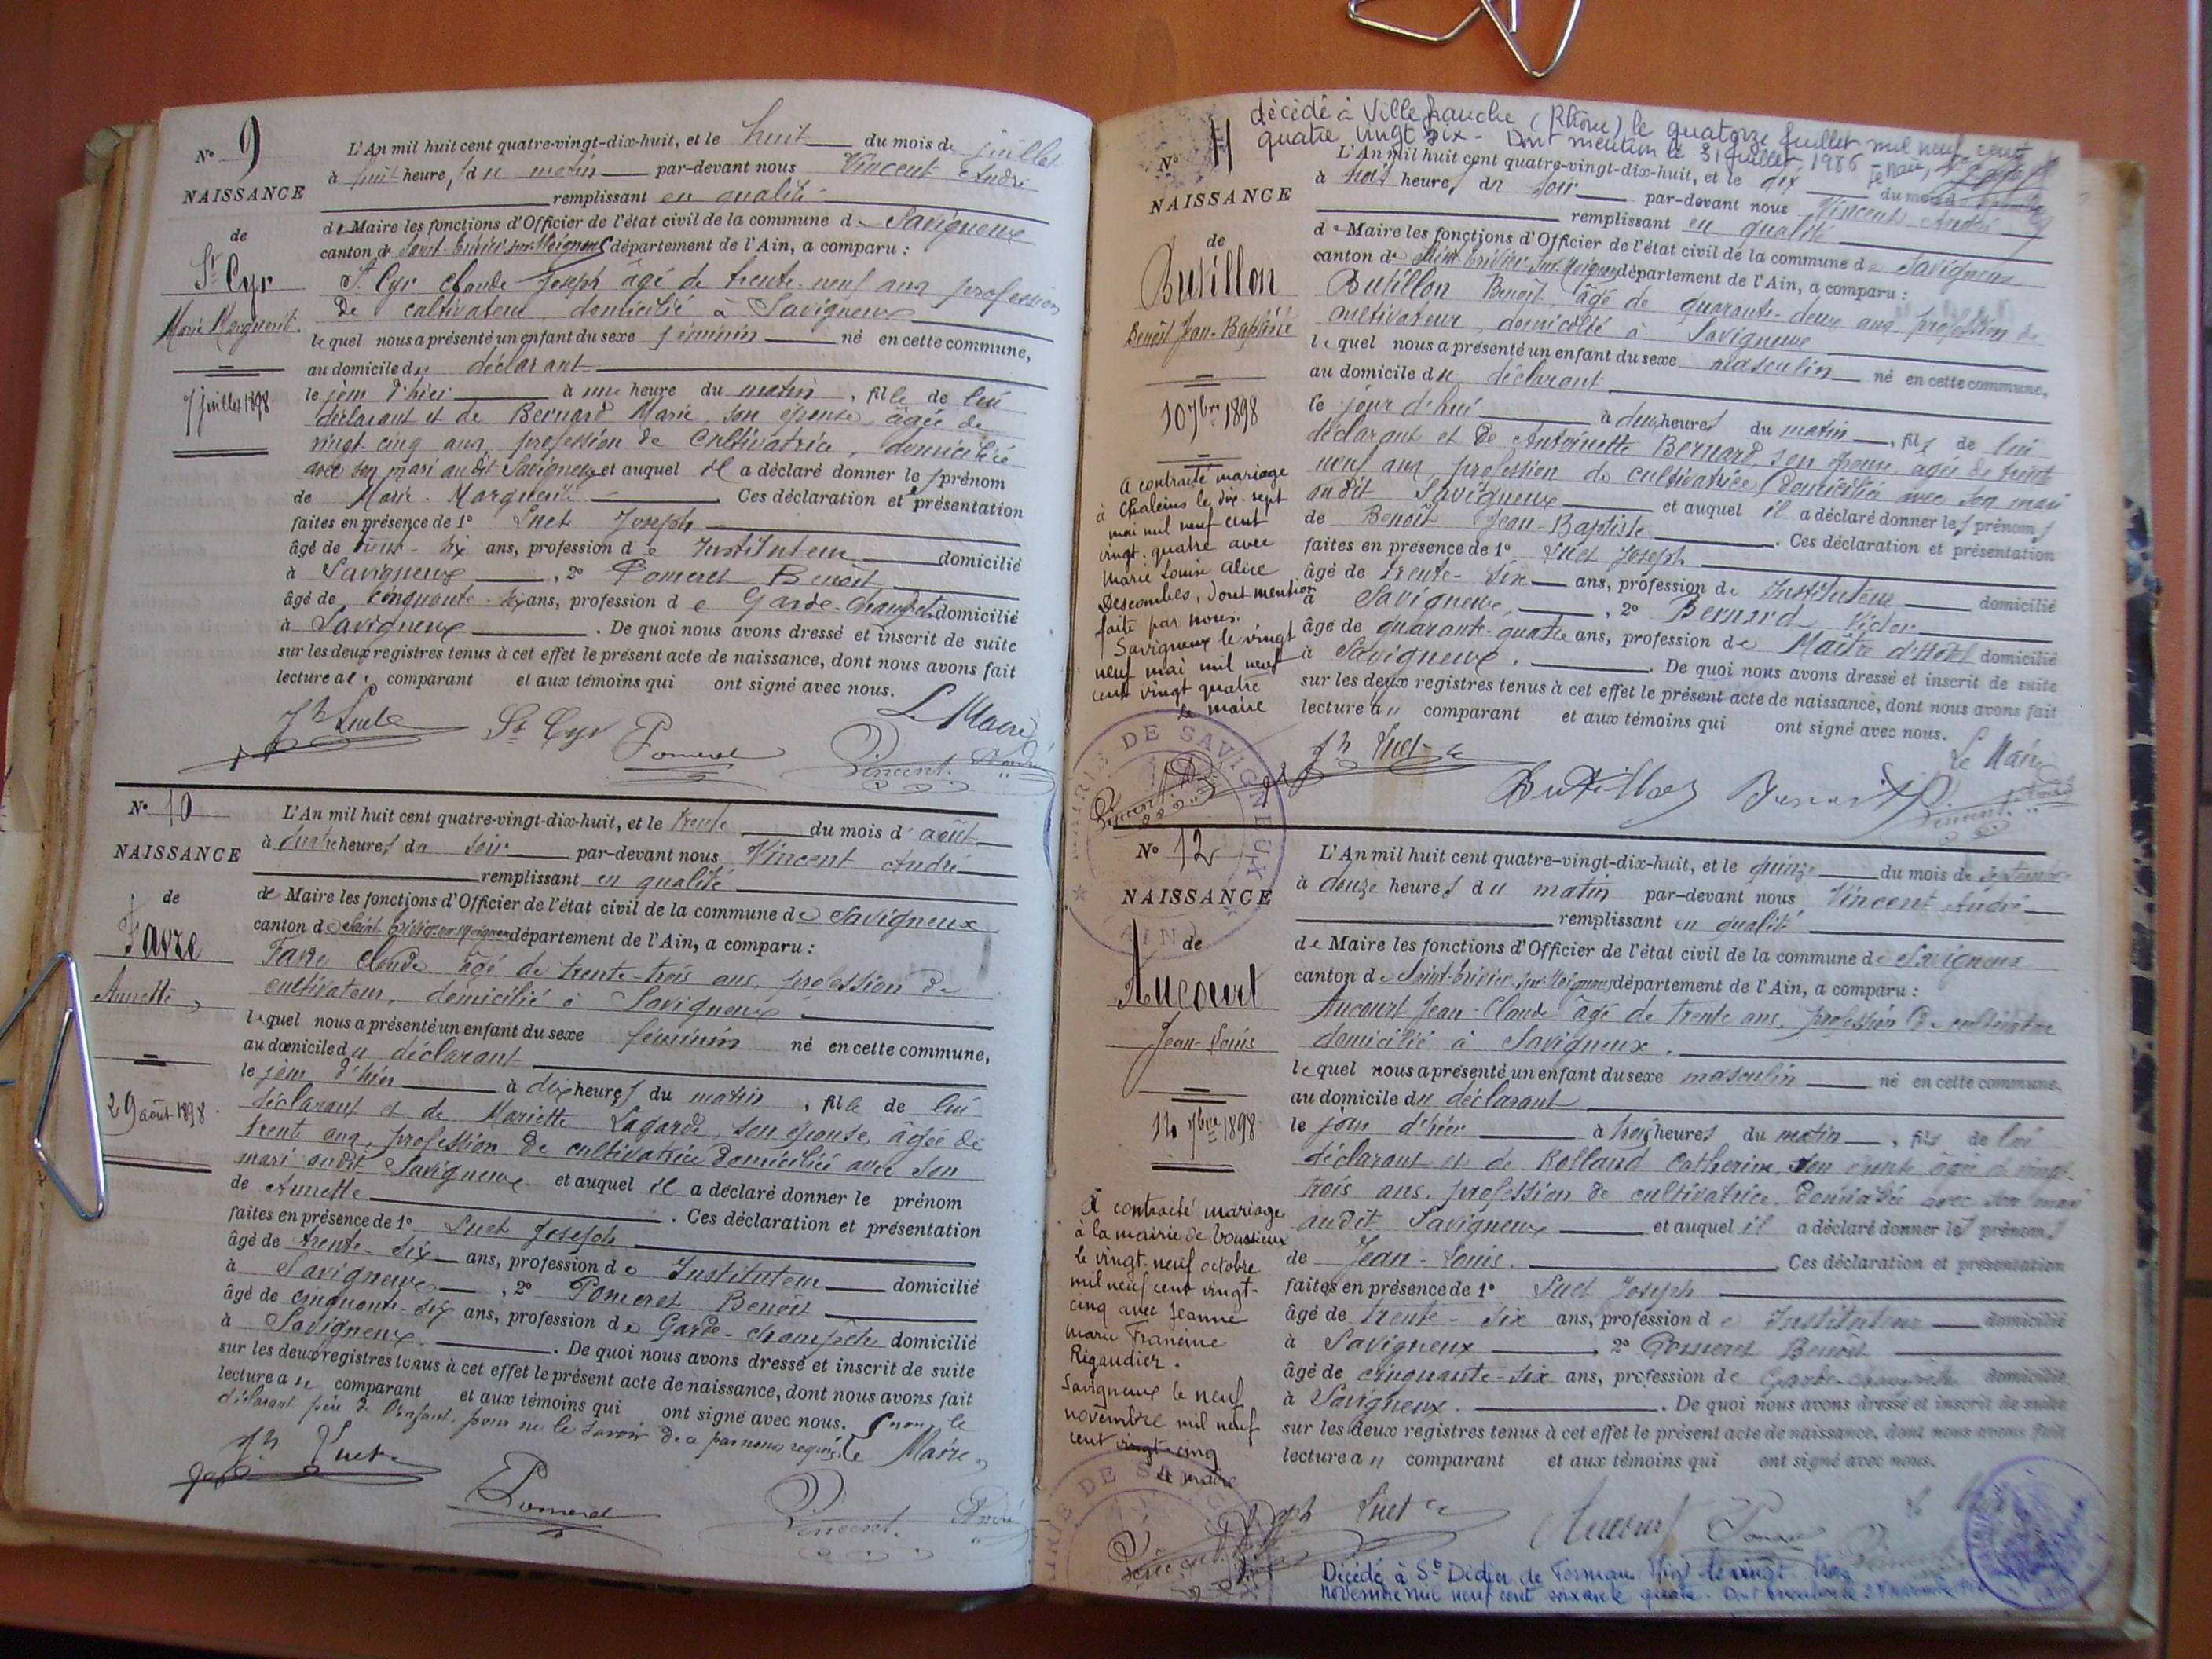 N° 9
NAISSANCE
de
St Cyr
Marie Marguerite
7 juillet 1898
L'An mil huit cent quatre-vingt-dix-huit, et le huit du mois de juillet
à huit heures du matin par-devant nous Vincent André
remplissant en qualité
de Maire les fonctions d'Officier de l'état civil de la commune de Savigneux
canton de département de l'Ain, a comparu :
St Cyr Claude Joseph âgé de trente-neuf ans profession
de cultivateur domicilié à Savigneux
lequel nous a présenté un enfant du sexe féminin né en cette commune,
au domicile du déclarant
le jour d'hier à une heure du matin, fille de lui
déclarant et de Bernard Marie, son épouse âgée de
vingt cinq ans, profession de cultivatrice, domiciliée
avec son mari audit Savigneux et auquel il a déclaré donner le prénom
de Marie-Marguerite Ces déclaration et présentation
faites en présence de 1° Luet Joseph
âgé de trente-six ans, profession de Instituteur domicilié
à Savigneux, 2° Pomeret Benoît
âgé de cinquante-six ans, profession de Garde-Champêt. domicilié
à Savigneux. De quoi nous avons dressé et inscrit de suite
sur les deux registres tenus à cet effet le présent acte de naissance, dont nous avons fait
lecture au comparant et aux témoins qui ont signé avec nous.
Le Maire
Jh Luet St Cyr Pomeret Vincent André
N° 10
NAISSANCE
de
Favre
Annette
29 août 1898.
L'An mil huit cent quatre-vingt-dix-huit, et le trente du mois d'août
à heures du soir par-devant nous Vincent André
remplissant en qualité
de Maire les fonctions d'Officier de l'état civil de la commune de Savigneux
canton de département de l'Ain, a comparu :
Favre Claude âgé de trente-trois ans, profession de
cultivateur, domicilié à Savigneux
lequel nous a présenté un enfant du sexe féminin né en cette commune,
au domicile du déclarant
le jour d'hier à dix heures du matin, fille de lui
déclarant et de Mariette Lagarde, son épouse, âgée de
trente ans, profession de cultivatrice domiciliée avec son
mari audit Savigneux et auquel il a déclaré donner le prénom
de Annette. Ces déclaration et présentation
faites en présence de 1° Luet Joseph
âgé de trente-six ans, profession de Instituteur domicilié
à Savigneux, 2° Pomeret Benoît
âgé de cinquante-six ans, profession de Garde-champêtre domicilié
à Savigneux. De quoi nous avons dressé et inscrit de suite
sur les deux registres tenus à cet effet le présent acte de naissance, dont nous avons fait
lecture au comparant et aux témoins qui ont signé avec nous. non le
déclarant père de l'enfant, pour ne le savoir de ce par nous requis. Le Maire,
Jh Luet Pomeret Vincent André
décédé à Villefranche (Rhône) le quatorze juillet mil neuf cent
quatre vingt six - Dont mention le 31 juillet 1986 Le Maire,
N° 11
NAISSANCE
de
Butillon
Benoît Jean-Baptiste
10 7bre 1898
A contracté mariage
à Chaleins le dix-sept
mai mil neuf cent
vingt-quatre avec
Marie Louise Alice
Descombes, dont mention
faite par nous.
Savigneux le vingt
neuf mai mil neuf
cent vingt quatre
le maire
MAIRIE DE SAVIGNEUX
AIN
L'An mil huit cent quatre-vingt-dix-huit, et le dix du mois de
à heures du soir par-devant nous Vincent André
remplissant en qualité
de Maire les fonctions d'Officier de l'état civil de la commune de Savigneux
canton de département de l'Ain, a comparu :
Butillon Benoît, âgé de quarante-deux ans profession de
cultivateur domicilié à Savigneux
lequel nous a présenté un enfant du sexe masculin né en cette commune,
au domicile du déclarant
le jour d'hui à heures du matin, fils de lui
déclarant et de Antoinette Bernard, son épouse, âgée de trente
neuf ans, profession de cultivatrice domiciliée avec son mari
audit Savigneux et auquel il a déclaré donner les prénoms
de Benoît Jean-Baptiste. Ces déclaration et présentation
faites en présence de 1° Luet Joseph
âgé de trente-six ans, profession de Instituteur domicilié
à Savigneux, 2° Bernard Victor
âgé de quarante-quatre ans, profession de Maître d'Hôtel domicilié
à Savigneux. De quoi nous avons dressé et inscrit de suite
sur les deux registres tenus à cet effet le présent acte de naissance, dont nous avons fait
lecture au comparant et aux témoins qui ont signé avec nous.
Le Maire
Jh Luet Butillon Bernard Vincent André
N° 12
NAISSANCE
de
Aucourt
Jean-Louis
7bre 1898
A contracté mariage
à la mairie de
le vingt-neuf octobre
mil neuf cent vingt-
cinq avec Jeanne
Marie Francine
Rigaudier.
Savigneux le neuf
novembre mil neuf
cent vingt-cinq
Le maire
L'An mil huit cent quatre-vingt-dix-huit, et le quinze du mois de septembre
à heures du matin par-devant nous Vincent André
remplissant en qualité
de Maire les fonctions d'Officier de l'état civil de la commune de Savigneux
canton de département de l'Ain, a comparu :
Aucourt Jean-Claude âgé de trente ans, profession de cultivateur
domicilié à Savigneux.
lequel nous a présenté un enfant du sexe masculin né en cette commune,
au domicile du déclarant
le jour d'hier à trois heures du matin, fils de lui
déclarant et de Rolland Catherine son épouse âgée de vingt-
trois ans, profession de cultivatrice domiciliée avec son mari
audit Savigneux et auquel il a déclaré donner les prénoms
de Jean-Louis. Ces déclaration et présentation
faites en présence de 1° Luet Joseph
âgé de trente-six ans, profession de Instituteur domicilié
à Savigneux 2° Pomeret Benoît
âgé de cinquante-six ans, profession de Garde-champêtre domicilié
à Savigneux. De quoi nous avons dressé et inscrit de suite
sur les deux registres tenus à cet effet le présent acte de naissance, dont nous avons fait
lecture au comparant et aux témoins qui ont signé avec nous.
Jph Luet Aucourt Pomeret Vincent
Décédé à St Didier de Formans (Ain) le vingt trois
novembre mil neuf cent soixante quatre. Dont mention le